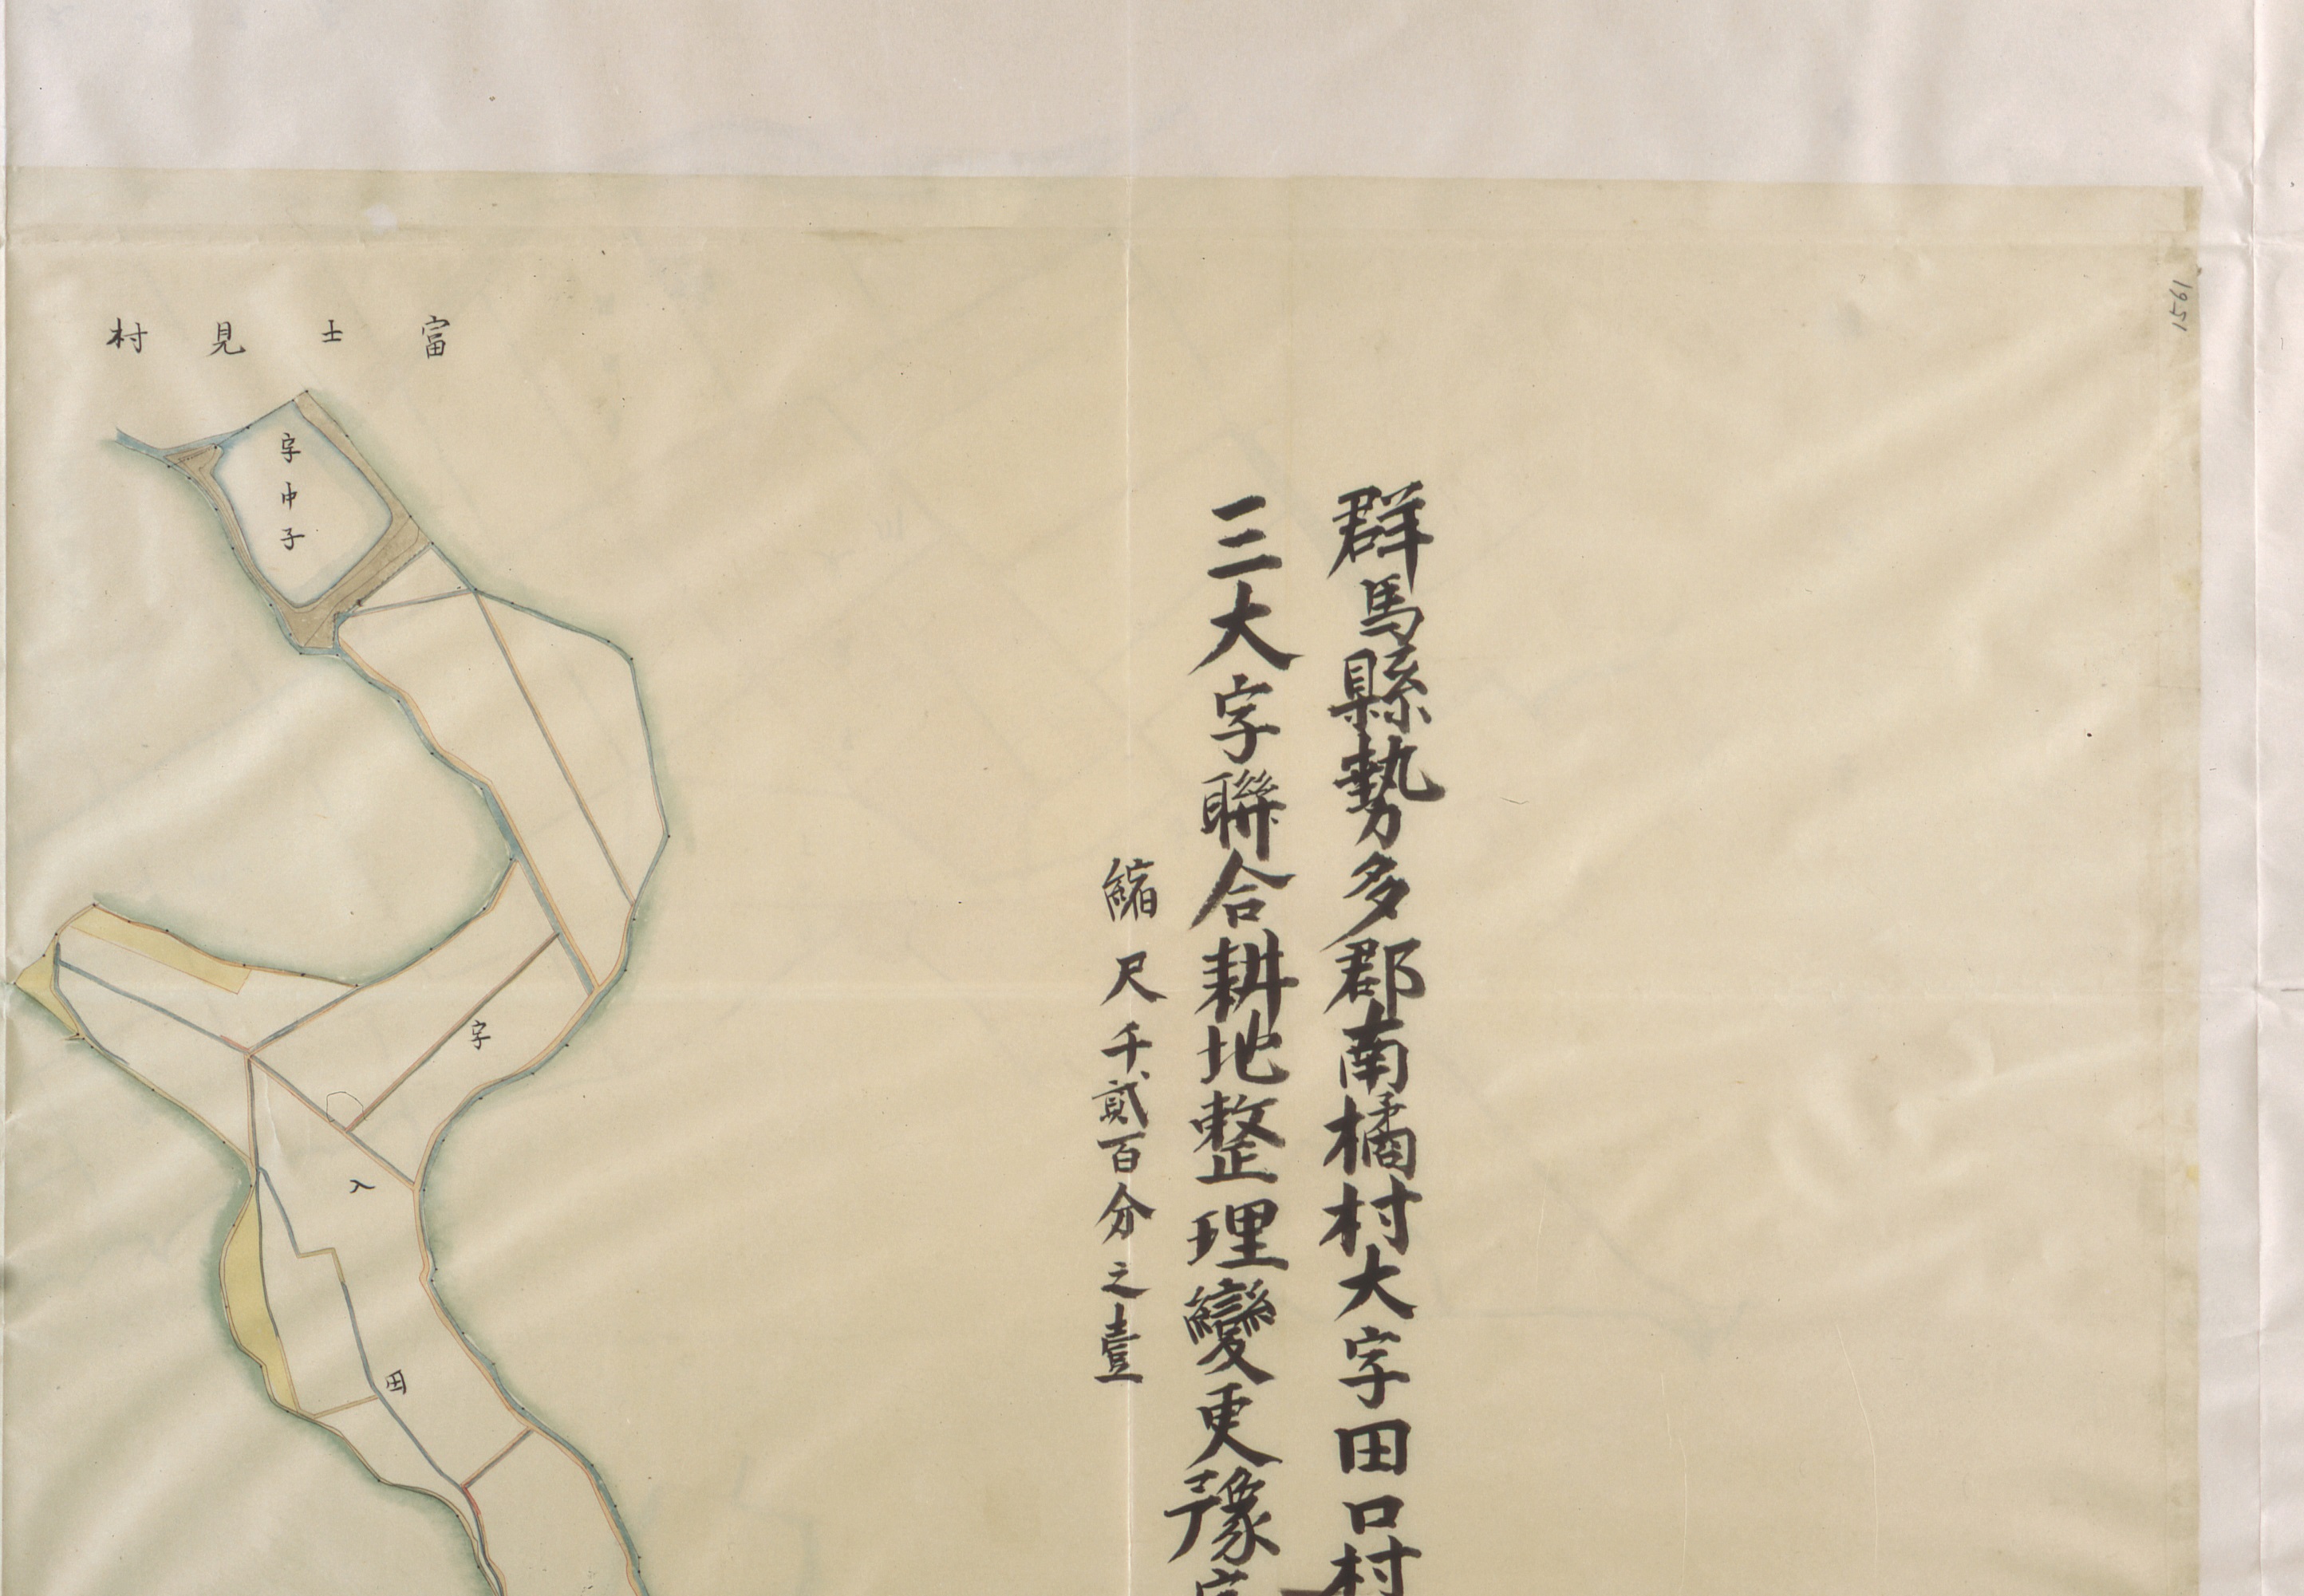 群馬縣勢多郡南橘村大字田口村
三大字聯合耕地整理變更豫定
縮尺千貳百分之壹
富士見村
字中子
字入田
1951